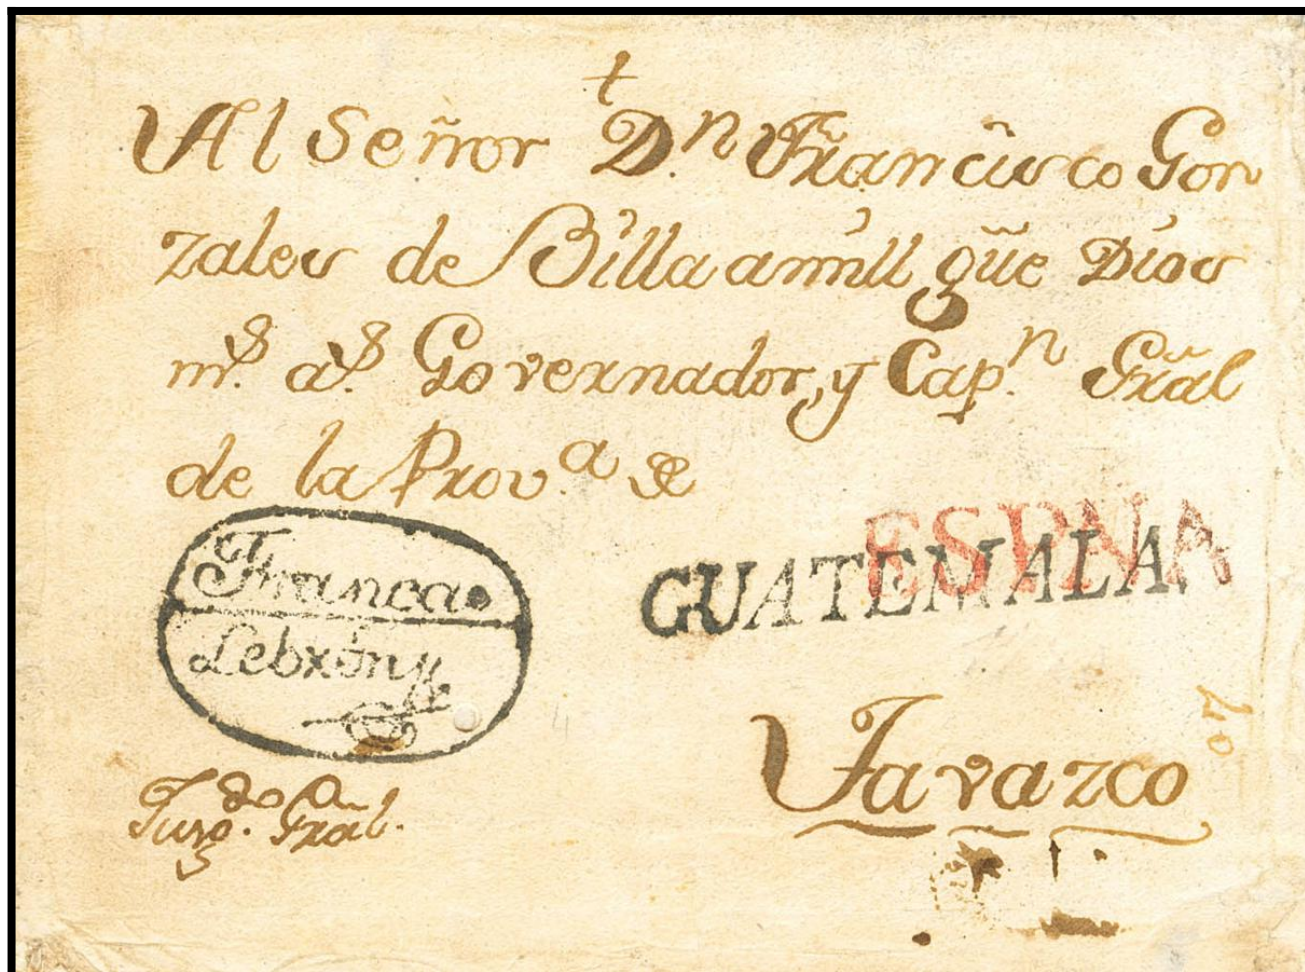 †
Al Señor D.n Francisco Gon
zales de Billa amill güe Dios
m.s a.s Governador, y Cap.n Gral
de la Prov.a de
Franca.
GUATEMALA.
ESPNA
Tavazco
07
Juzg.do Gral.